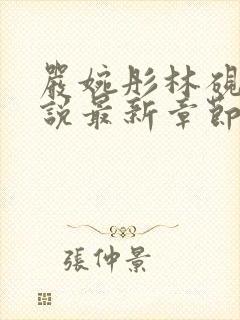 嚴婉彤林硯
說最新章節
張仲景